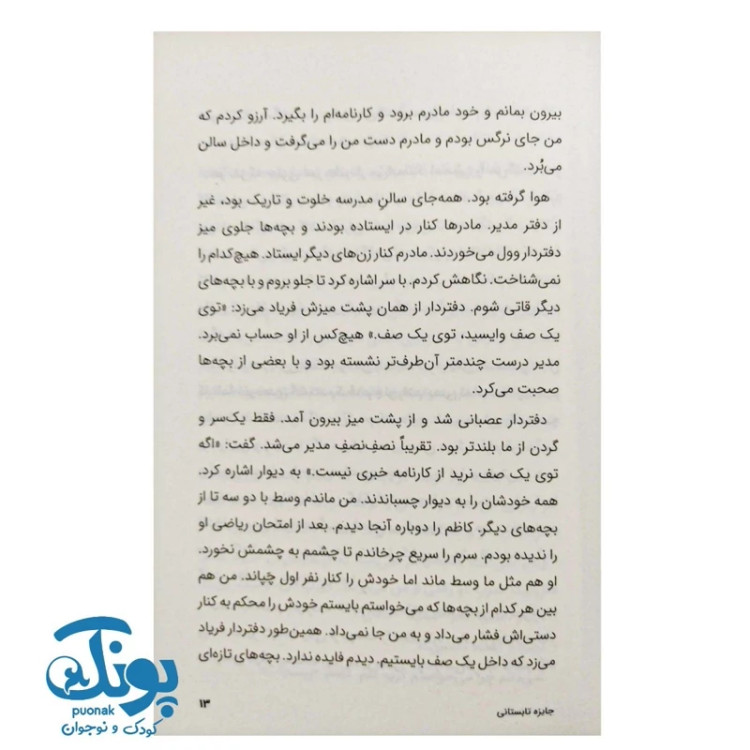 بیرون بمانم و خود مادرم برود و کارنامه‌ام را بگیرد. آرزو کردم که
من جای نرگس بودم و مادرم دست من را می‌گرفت و داخل سالن
می‌بُرد.
هوا گرفته بود. همه‌جای سالنِ مدرسه خلوت و تاریک بود، غیر
از دفتر مدیر. مادرها کنار در ایستاده بودند و بچه‌ها جلوی میز
دفتردار وول می‌خوردند. مادرم کنار زن‌های دیگر ایستاد. هیچ‌کدام را
نمی‌شناخت. نگاهش کردم. با سر اشاره کرد تا جلو بروم و با بچه‌های
دیگر قاتی شوم. دفتردار از همان پشت میزش فریاد می‌زد: «توی
یک صف وایسید، توی یک صف.» هیچ‌کس از او حساب نمی‌برد.
مدیر درست چندمتر آن‌طرف‌تر نشسته بود و با بعضی از بچه‌ها
صحبت می‌کرد.
دفتردار عصبانی شد و از پشت میز بیرون آمد. فقط یک‌سر و
گردن از ما بلندتر بود. تقریباً نصفِ‌نصفِ مدیر می‌شد. گفت: «اگه
توی یک صف نرید از کارنامه خبری نیست.» به دیوار اشاره کرد.
همه خودشان را به دیوار چسباندند. من ماندم وسط با دو سه تا از
بچه‌های دیگر. کاظم را دوباره آنجا دیدم. بعد از امتحان ریاضی او
را ندیده بودم. سرم را سریع چرخاندم تا چشمم به چشمش نخورد.
او هم مثل ما وسط ماند اما خودش را کنار نفر اول چَپاند. من هم
بین هر کدام از بچه‌ها که می‌خواستم بایستم خودش را محکم به کنار
دستی‌اش فشار می‌داد و به من جا نمی‌داد. همین‌طور دفتردار فریاد
می‌زد که داخل یک صف بایستیم. دیدم فایده ندارد. بچه‌های تازه‌ای
جایزه تابستانی
۱۳
پونک
puonak
کودک و نوجوان